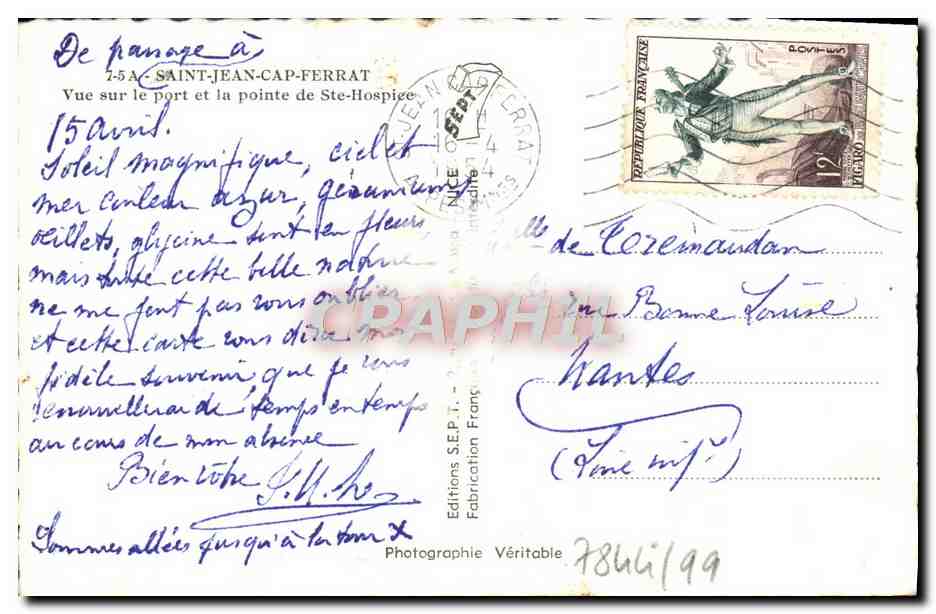 De passage à
7-5 A - SAINT-JEAN-CAP-FERRAT
Vue sur le port et la pointe de Ste-Hospice
15 avril.
Soleil magnifique, ciel et
mer couleur azur, géraniums
œillets, glycine sont en fleurs,
mais toute cette belle nature
ne me font pas vous oublier
et cette carte vous dire mon
fidèle souvenir, que je vous
renouvellerai de temps en temps
au cours de mon absence
Bien vôtre
Sommes allées jusqu'à la tour X
ST JEAN CAP FERRAT
ALPES MMES
SEPT
NICE
Interdite
Editions S.E.P.T. -
Fabrication Française
Photographie Véritable
REPUBLIQUE FRANÇAISE
POSTES
12F
FIGARO
Melle de Teremaudan
rue Bonne Louise
Nantes
(Loire infre)
78441/99
CRAPHIL